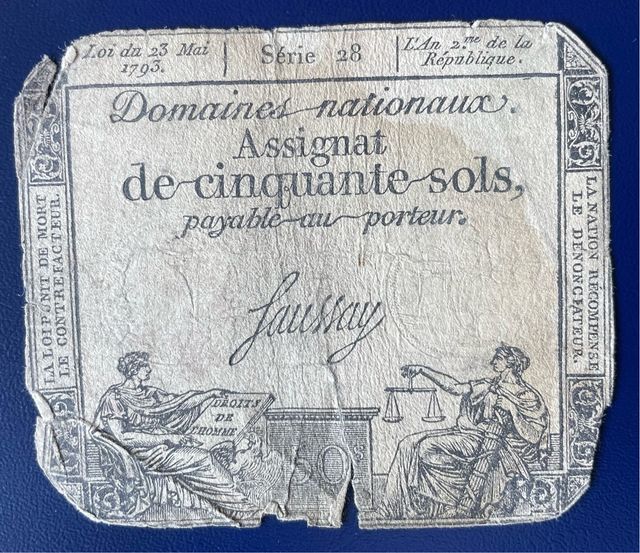 Loi du 23 Mai
1793.
Série 28
L'An 2.me de la
République.
Domaines nationaux.
Assignat
de cinquante sols,
payable au porteur.
LA LOI PUNIT DE MORT
LE CONTREFACTEUR.
LA NATION RÉCOMPENSE
LE DÉNONCIATEUR.
Saussay
DROITS
DE
L'HOMME
50s